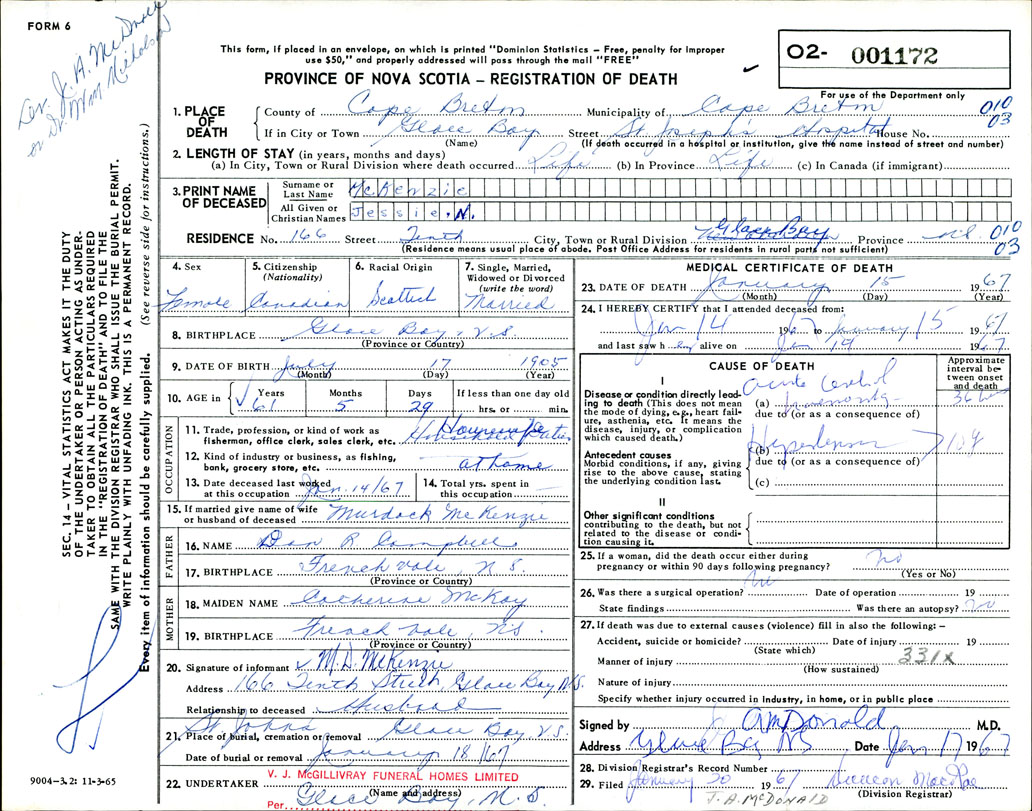 FORM 6
Rev. J. A. McDonald
or Dr. M M Nicholson
This form, if placed in an envelope, on which is printed "Dominion Statistics – Free, penalty for improper
use $50," and properly addressed will pass through the mail "FREE"
PROVINCE OF NOVA SCOTIA – REGISTRATION OF DEATH
02- 001172
For use of the Department only
010
03
1. PLACE OF DEATH
County of Cape Breton Municipality of Cape Breton
If in City or Town Glace Bay Street St Joseph's Hospital House No.
(Name) (If death occurred in a hospital or institution, give the name instead of street and number)
2. LENGTH OF STAY (in years, months and days)
(a) In City, Town or Rural Division where death occurred Life (b) In Province Life (c) In Canada (if immigrant)
3. PRINT NAME OF DECEASED
Surname or Last Name McKenzie
All Given or Christian Names Jessie. N.
RESIDENCE No. 166 Street Tenth City, Town or Rural Division Glace Bay Province N.S. 010
03
(Residence means usual place of abode. Post Office Address for residents in rural parts not sufficient)
4. Sex Female
5. Citizenship (Nationality) Canadian
6. Racial Origin Scottish
7. Single, Married, Widowed or Divorced (write the word) Married
8. BIRTHPLACE Glace Bay, N.S.
(Province or Country)
9. DATE OF BIRTH July 17 1905
(Month) (Day) (Year)
10. AGE in Years Months Days If less than one day old
61 5 29 hrs. or min.
OCCUPATION
11. Trade, profession, or kind of work as fisherman, office clerk, sales clerk, etc. Housewife Household Duties
12. Kind of industry or business, as fishing, bank, grocery store, etc. at home
13. Date deceased last worked at this occupation Jan. 14/67
14. Total yrs. spent in this occupation
15. If married give name of wife or husband of deceased Murdock McKenzie
FATHER
16. NAME Dan R Campbell
17. BIRTHPLACE French Vale, N S.
(Province or Country)
MOTHER
18. MAIDEN NAME Catherine McKay
19. BIRTHPLACE French Vale, N.S.
(Province or Country)
20. Signature of informant M. D. McKenzie
Address 166 Tenth Street, Glace Bay N.S.
Relationship to deceased Husband
St Johns Glace Bay N.S.
21. Place of burial, cremation or removal
Date of burial or removal January 18/67
22. UNDERTAKER V. J. McGILLIVRAY FUNERAL HOMES LIMITED
(Name and address)
Per Glace Bay, N.S.
MEDICAL CERTIFICATE OF DEATH
23. DATE OF DEATH January 15 1967
(Month) (Day) (Year)
24. I HEREBY CERTIFY that I attended deceased from:
Jan 14 1967 to January 15 1967
and last saw her alive on Jan 14 1967
CAUSE OF DEATH
Approximate interval between onset and death
I
Disease or condition directly leading to death (This does not mean the mode of dying, e.g., heart failure, asthenia, etc. It means the disease, injury, or complication which caused death.)
(a) Acute Cerebral 36 hrs
due to (or as a consequence of)
Antecedent causes
Morbid conditions, if any, giving rise to the above cause, stating the underlying condition last.
(b) Hypertension
due to (or as a consequence of)
(c)
II
Other significant conditions contributing to the death, but not related to the disease or condition causing it.
25. If a woman, did the death occur either during pregnancy or within 90 days following pregnancy? no
(Yes or No)
26. Was there a surgical operation? no Date of operation 19
State findings Was there an autopsy? no
27. If death was due to external causes (violence) fill in also the following: –
Accident, suicide or homicide? Date of injury 19
(State which)
Manner of injury 331X
(How sustained)
Nature of injury
Specify whether injury occurred in industry, in home, or in public place
Signed by J. A McDonald M.D.
Address Glace Bay NS Date Jan 17 1967
28. Division Registrar's Record Number
29. Filed January 20 1967 Duncan MacRae
(Division Registrar)
J. A. McDONALD
SEC. 14 – VITAL STATISTICS ACT MAKES IT THE DUTY
OF THE UNDERTAKER OR PERSON ACTING AS UNDER-
TAKER TO OBTAIN ALL THE PARTICULARS REQUIRED
IN THE "REGISTRATION OF DEATH" AND TO FILE THE
SAME WITH THE DIVISION REGISTRAR WHO SHALL ISSUE THE BURIAL PERMIT.
WRITE PLAINLY WITH UNFADING INK. THIS IS A PERMANENT RECORD.
Every item of information should be carefully supplied. (See reverse side for instructions.)
9004–3.2: 11-3-65